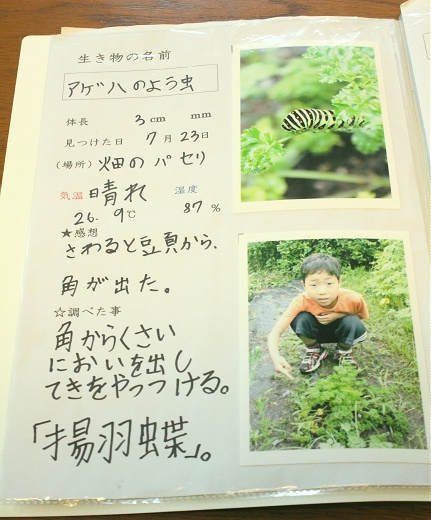 生き物の名前
アゲハのよう虫
体長 3 cm mm
見つけた日 7 月 23 日
(場所) 畑の パセリ
気温 晴れ 湿度
26.9℃ 87 %
★感想
さわると豆頁から、
角が出た。
☆調べた事
角からくさい
においを出し
てきをやっつける。
「揚羽蝶」。